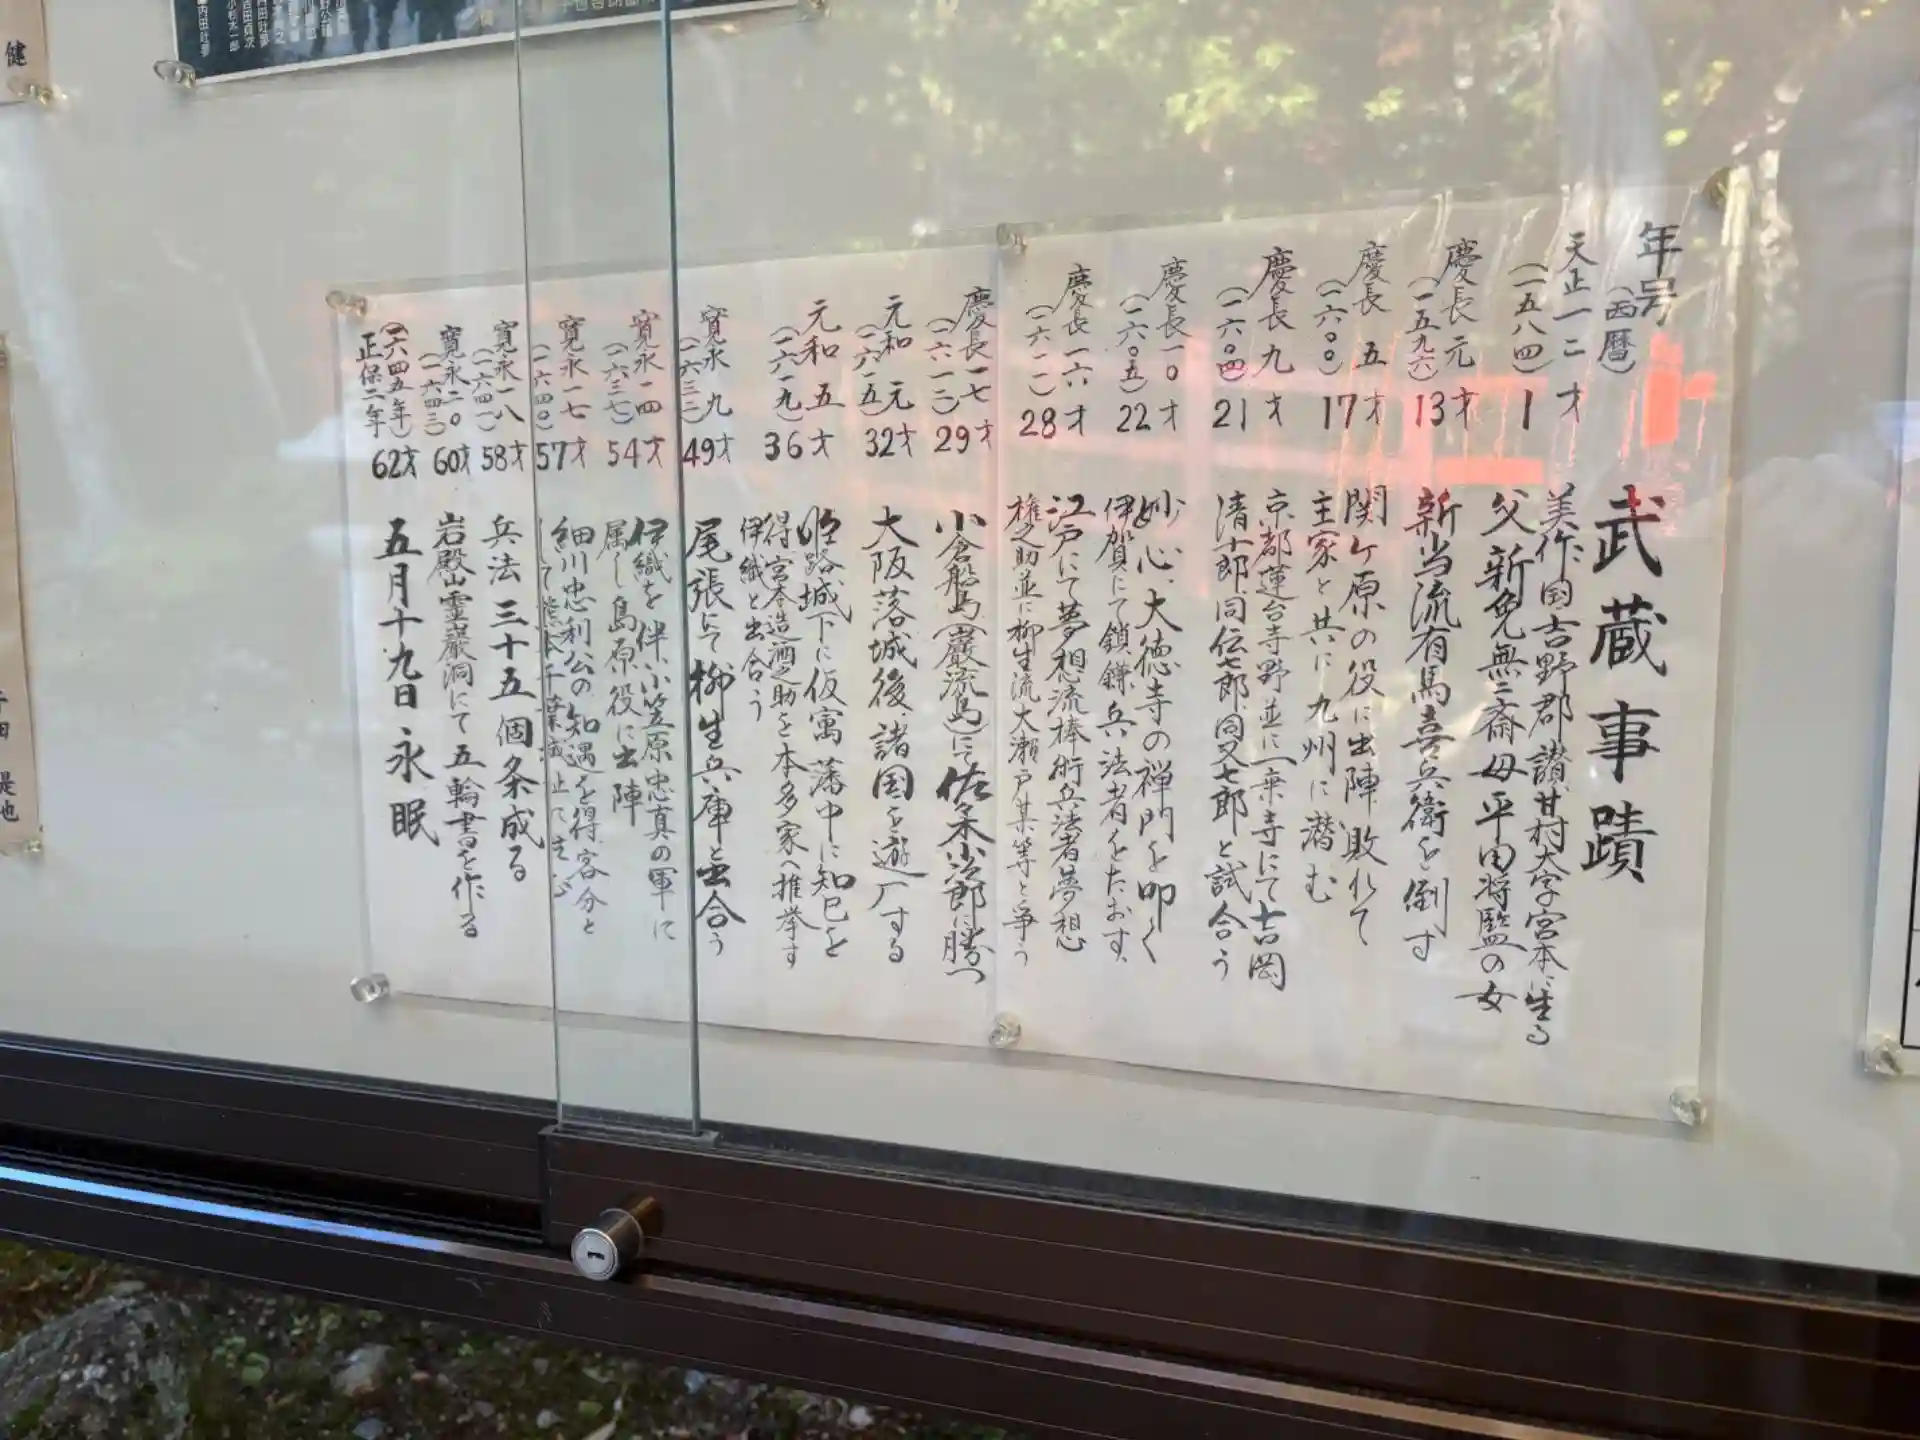 年号
(西暦)
武蔵事蹟
天正一二
(一五八四)
才
1
美作国吉野郡讃甘村大字宮本に生る
父新免無二斎母平田将監の女
慶長元
(一五九六)
才
13
新当流有馬喜兵衛を倒す
慶長五
(一六〇〇)
才
17
関ヶ原の役に出陣敗れて
主家と共に九州に潜む
慶長九
(一六〇四)
才
21
京都蓮台寺野並に一乗寺にて吉岡
清十郎、同伝七郎、同又七郎と試合う
慶長一〇
(一六〇五)
才
22
妙心、大徳寺の禅門を叩く
伊賀にて鎖鎌兵法者をたおす、
慶長一六
(一六一一)
才
28
江戸にて夢想流棒術兵法者夢想
権之助並に柳生流大瀬戸某等と争う
慶長一七
(一六一二)
才
29
小倉船島(巌流島)にて佐々木小次郎に勝つ
元和元
(一六一五)
才
32
大阪落城後、諸国を遊歴する
元和五
(一六一九)
才
36
姫路城下に仮寓藩中に知己を
得、宮本造酒之助を本多家へ推挙す
伊織と出合う
寛永九
(一六三二)
才
49
尾張にて柳生兵庫と出合う
寛永一四
(一六三七)
才
54
伊織を伴い小笠原忠真の軍に
属し島原役に出陣
寛永一七
(一六四〇)
才
57
細川忠利公の知遇を得客分と
して熊本千葉城
寛永一八
(一六四一)
才
58
兵法三十五個条成る
寛永二〇
(一六四三)
才
60
岩殿山霊巌洞にて五輪書を作る
正保二年
(一六四五年)
才
62
五月十九日永眠
健
内田吐夢
是也